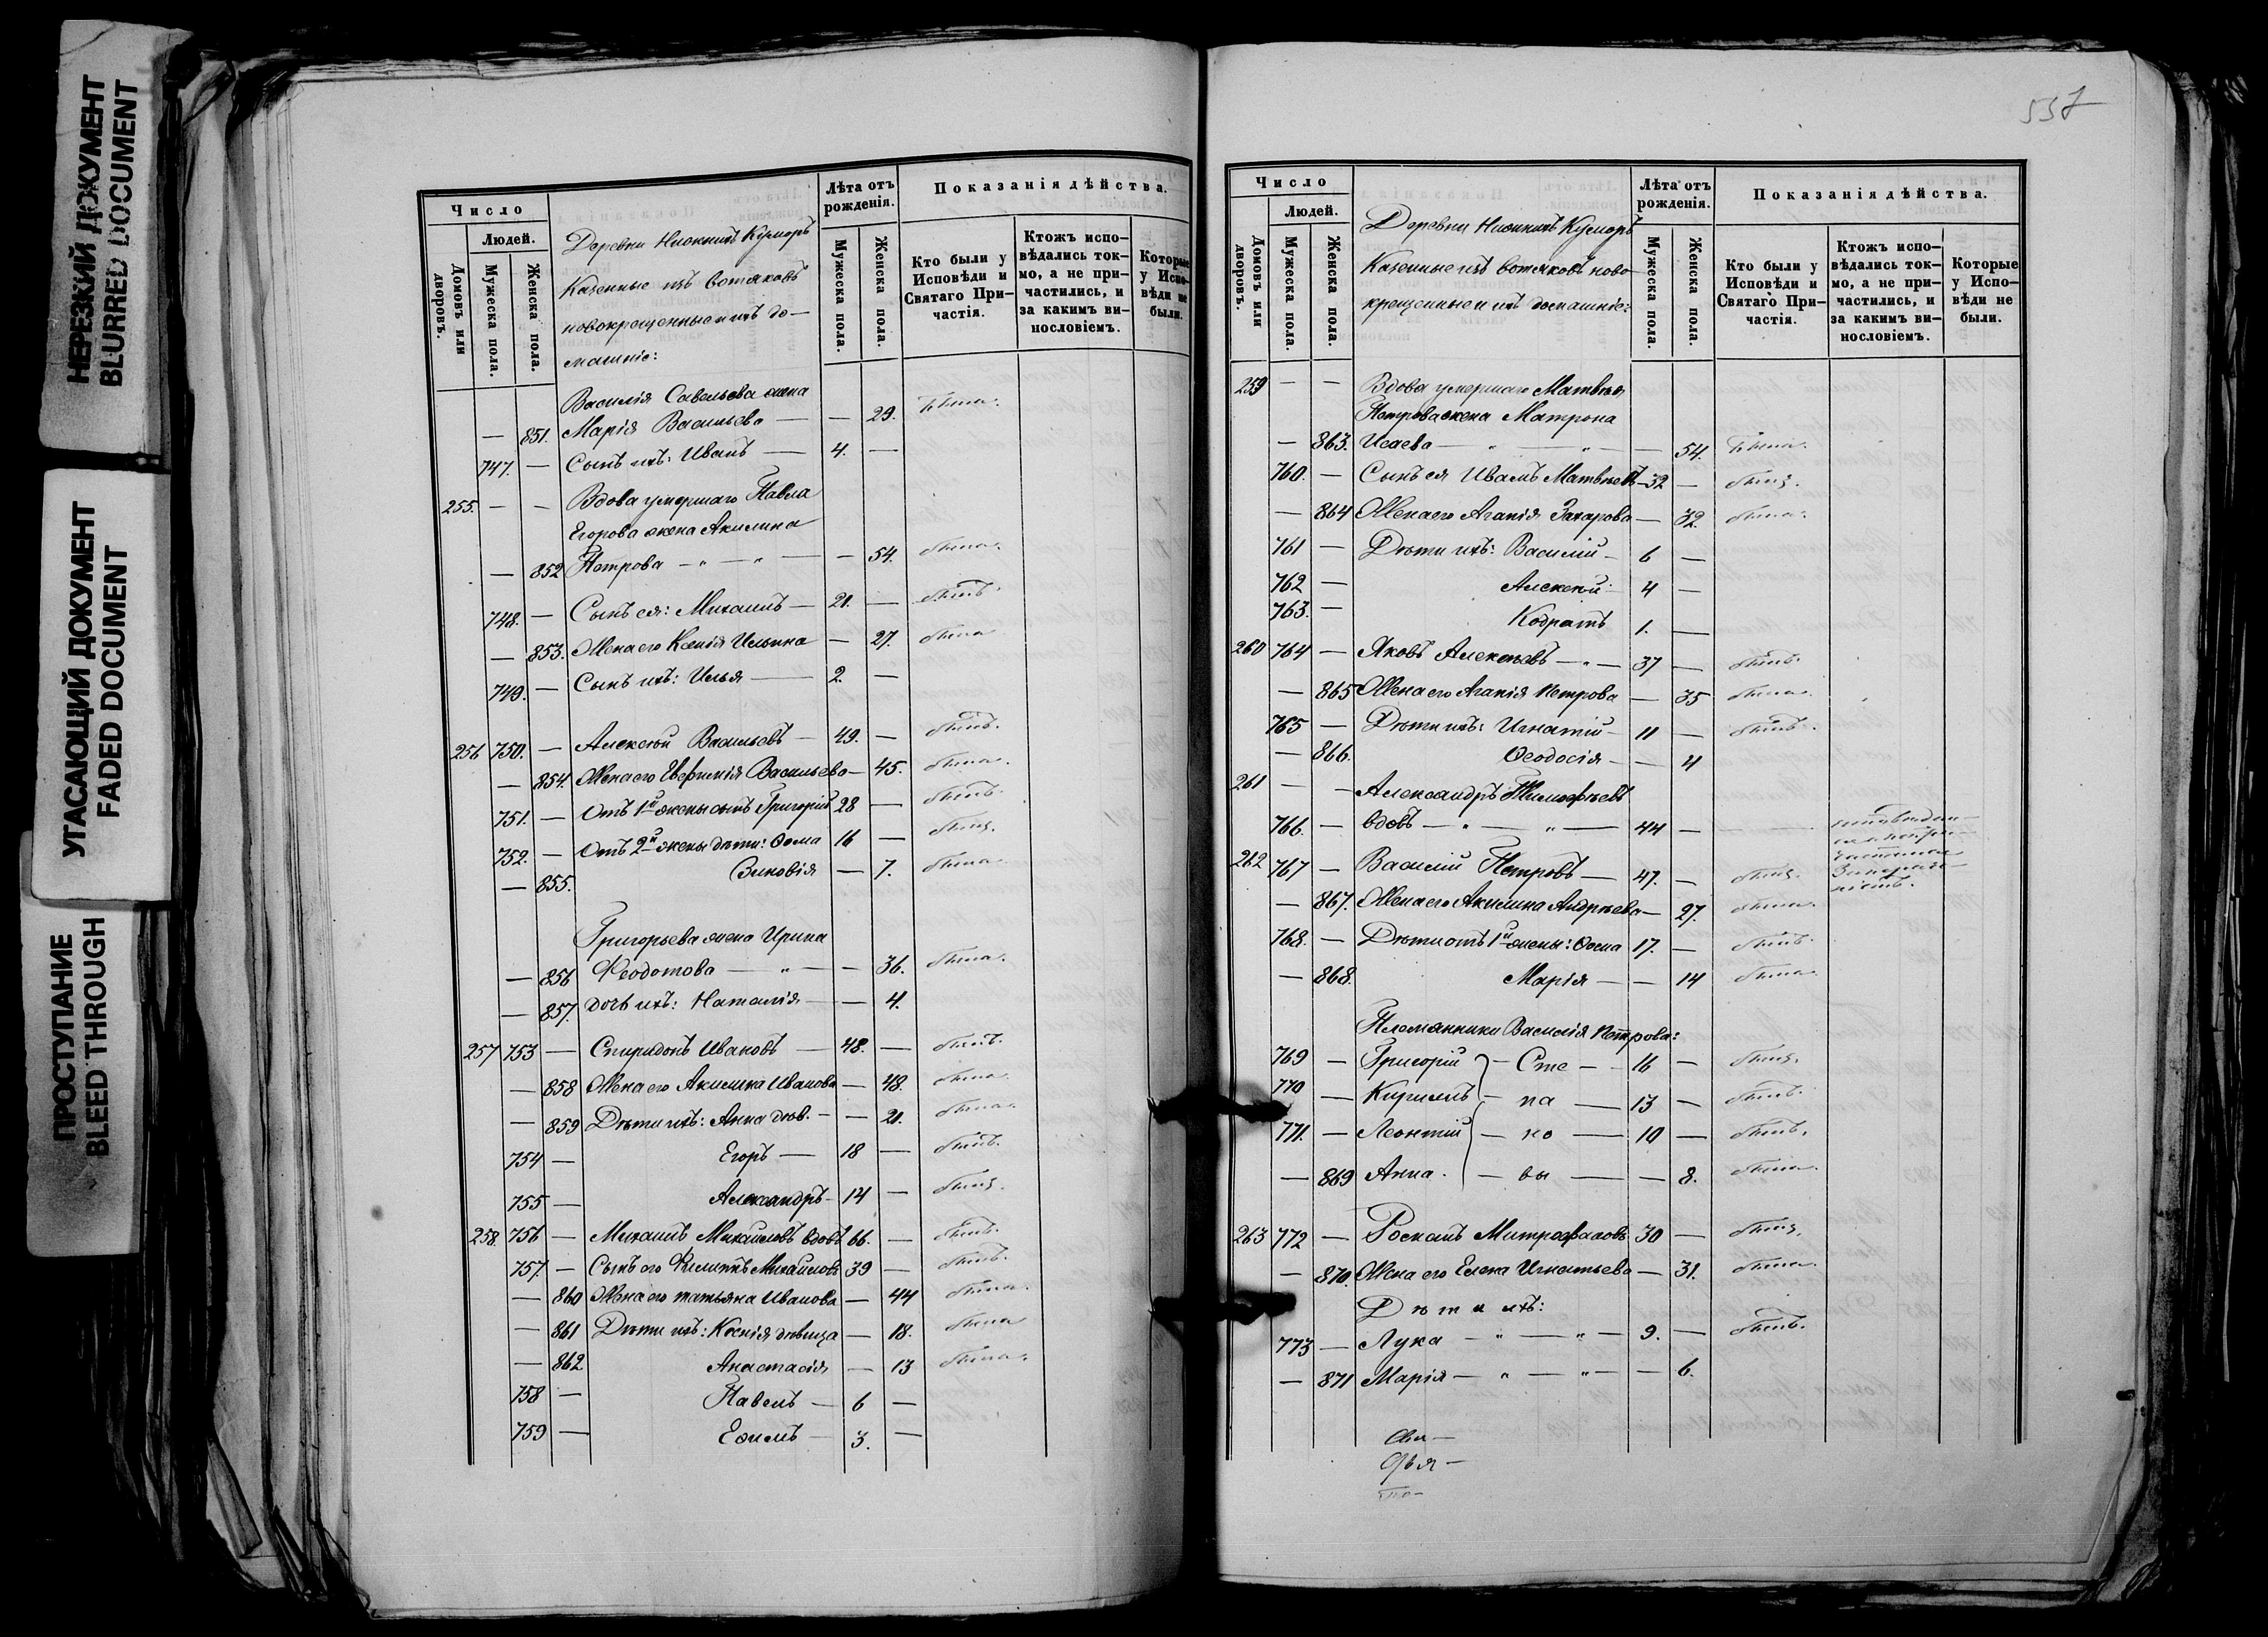 НЕРЕЗКИЙ ДОКУМЕНТ
BLURRED DOCUMENT
УГАСАЮЩИЙ ДОКУМЕНТ
FADED DOCUMENT
ПРОСТУПАНИЕ
BLEED THROUGH
Число
Людей.
Домовъ или дворовъ.
Мужеска пола.
Женска пола.
Деревни Нижнихъ Кумаръ
Казенные изъ вотяковъ
новокрещенные и ихъ до-
машніе:
Лѣта отъ рожденія.
Мужеска пола.
Женска пола.
Показанія дѣйства.
Кто были у Исповѣди и Святаго При-частія.
Ктожъ испо-вѣдались ток-мо, а не при-частились, и за какимъ ви-нословіемъ.
Которые у Испо-вѣди не были.
Василія Савельева жена
— 851. Марія Васильева — — 29. была.
747. — Сынъ ихъ: Иванъ — 4. —
255. — — Вдова умершаго Павла
Егорова жена Акилина
— 852 Петрова — " — " — — 54. была.
748. — Сынъ ея: Михаилъ — 21. — былъ.
— 853. Жена его Ксенія Ильина — 27. была
749. — Сынъ ихъ: Илья — 2. —
256 750. — Алексѣй Васильевъ — 49. — былъ.
— 854. Жена его Евфимія Васильева — 45. была.
751. — Отъ 1й жены сынъ Григорій 28 — былъ.
752. — Отъ 2й жены дѣти: Ѳома 16 — былъ.
— 855. Зиновія — 7. была.
Григорьева жена Ирина
— 856 Феодотова — " — — 36. была.
— 857. дочь ихъ: Наталія — — 4.
257 753 — Спиридонъ Ивановъ — 48. — былъ.
— 858 Жена его Акилина Иванова — 48. была.
— 859 Дѣти ихъ: Анна дѣв. — — 21. была.
754 — Егоръ — 18 — былъ.
755 — Александръ — 14 — былъ.
258. 756 — Михаилъ Михаиловъ вдовъ 66. — былъ.
757. — Сынъ его Филиппъ Михаиловъ 39 — былъ.
— 860 Жена его татьяна Иванова — 44 была.
— 861 Дѣти ихъ: Ксенія дѣвица — 18. была
— 862 Анастасія — 13 была.
758 — Павелъ — 6 —
759 — Ефимъ — 3. —
537
Число
Людей.
Домовъ или дворовъ.
Мужеска пола.
Женска пола.
Деревни Нижнихъ Кумаръ
Казенные изъ вотяковъ ново-
крещенные и ихъ домашніе:
Лѣта отъ рожденія.
Мужеска пола.
Женска пола.
Показанія дѣйства.
Кто были у Исповѣди и Святаго При-частія.
Ктожъ испо-вѣдались ток-мо, а не при-частились, и за какимъ ви-нословіемъ.
Которые у Испо-вѣди не были.
259 — — Вдова умершаго Матвѣя
Петрова жена Матрона
— 863. Исаева — " — " — — 54. была.
760. — Сынъ ея Иванъ Матвѣевъ — 32 — былъ.
— 864 Жена его Агапія Захарова — 32. была.
761 — Дѣти ихъ: Василій — 6 —
762 — Алексѣй — 4 —
763. — Кодратъ 1. —
260 764 — Яковъ Алексѣевъ — " — 37 — былъ.
— 865 Жена его Агапія Петрова — 35 была.
765 — Дѣти ихъ: Игнатій — 11 — былъ.
— 866. Ѳеодосія — — 4
261 — — Александръ Тимофѣевъ
766. — вдовъ — " — " — 44 — —
262 767 — Василій Петровъ — 47. — былъ.
— 867. Жена его Акилина Андрѣева — 27. была.
768. — Дѣти отъ 1й жены: Ѳома 17. — былъ.
— 868. Марія — — 14 была.
Племянники Василія Петрова:
769 — Григорій — Сте — 16 — былъ.
770 — Кириллъ — па — 13 — былъ.
771. — Леонтій — но — 10 — былъ.
— 869 Анна. — вы — — 8. была.
263 772 — Романъ Митрофановъ 30 — былъ.
— 870. Жена его Елена Игнатьева — 31. была.
Дѣти ихъ:
773 — Лука — " — " — 9. — былъ.
— 871 Марія — " — " — — 6.